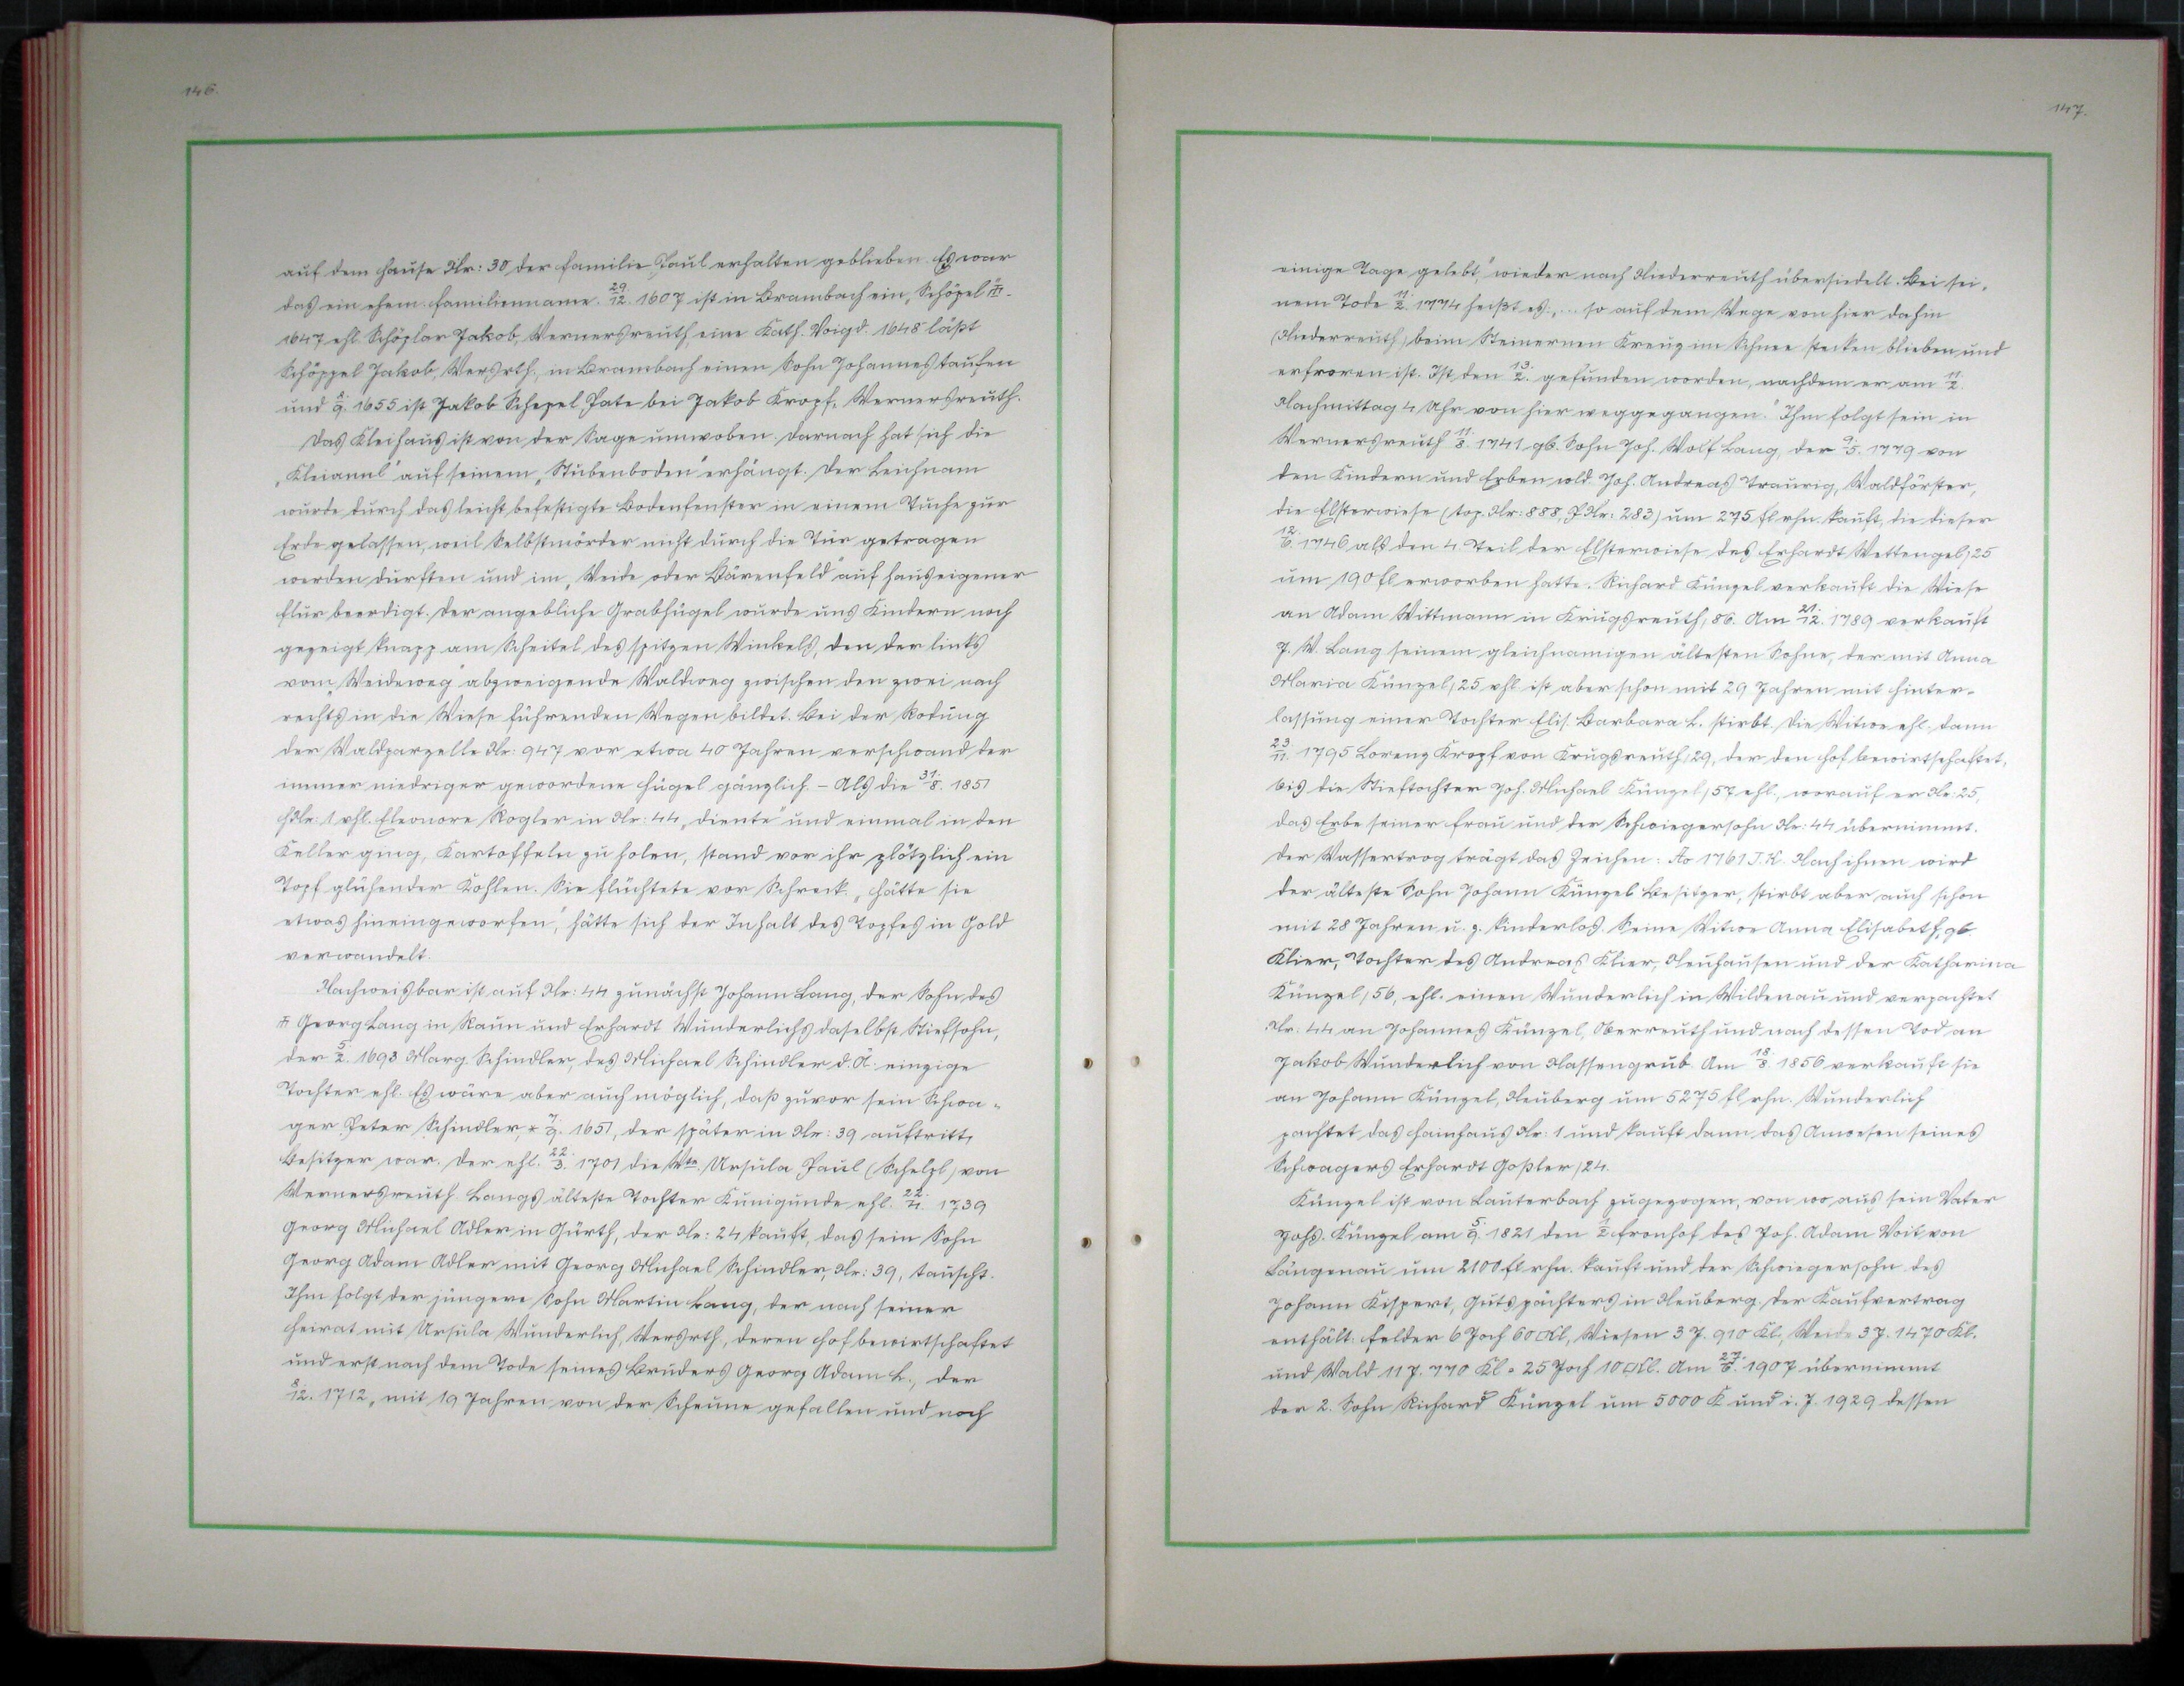 146.
auf dem Hause Nr: 30 der Familie Paul erhalten geblieben. Es war
das ein ehem. Familienname. 29./12. 1607 ist in Brambach ein „Schözel" ⚔.
1647 ehl. Schözlar Jakob, Wernersreuth, eine Kath. Voigd. 1648 läßt
Schöppel Jakob, Wersrth., in Brambach einen Sohn Johannes taufen
und 1655 ist Jakob Schezel Pate bei Jakob Kropf, Wernersreuth.
Das Kleihaus ist von der Sage umwoben. Darnach hat sich die
„Kleiannl" auf seinem „Stubenboden" erhängt. Der Leichnam
wurde durch das leicht befestigte Bodenfenster in einem Tuche zur
Erde gelassen, weil Selbstmörder nicht durch die Tür getragen
werden durften und im „Weide oder Bärenfeld" auf hauseigener
Flur beerdigt. Der angebliche Grabhügel wurde uns Kindern noch
gezeigt knapp am Scheitel des spitzen Winkels, den der links
vom „Weideweg" abzweigende Waldweg zwischen den zwei nach
rechts in die Wiese führenden Wegen bildet. Bei der Rodung
der Waldparzelle Nr: 947 vor etwa 40 Jahren verschwand der
immer niedriger gewordene Hügel gänzlich. – Als die 31./8. 1851
Hs Nr: 1 vhl. Eleonore Rogler in Nr: 44 „diente" und einmal in den
Keller ging, Kartoffeln zu holen, stand vor ihr plötzlich ein
Topf glühender Kohlen. Sie flüchtete vor Schreck. „Hätte sie
etwas hineingeworfen," hätte sich der Inhalt des Topfes in Gold
verwandelt.
Nachweisbar ist auf Nr: 44 zunächst Johann Lang, der Sohn des
⚔ Georg Lang in Raun und Erhardt Wunderlichs daselbst Stiefsohn,
der 5./2. 1693 Marg. Schindler, des Michael Schindler d. Ä. einzige
Tochter ehl. Es wäre aber auch möglich, daß zuvor sein Schwa-
ger Peter Schindler, * 7./9. 1651, der später in Nr: 39 auftritt,
Besitzer war. Der ehl. 22./3. 1701 die Wte. Ursula Paul (Schelzl) von
Wernersreuth. Langs älteste Tochter Kunigunde ehl. 22./11. 1739
Georg Michael Adler in Gürth, der Nr: 24 kauft, das sein Sohn
Georg Adam Adler mit Georg Michael Schindler, Nr: 39, tauscht.
Ihm folgt der jüngere Sohn Martin Lang, der nach seiner
Heirat mit Ursula Wunderlich, Wersrth, deren Hof bewirtschaftet
und erst nach dem Tode seines Bruders Georg Adam L., der
8./12. 1712 „mit 19 Jahren von der Scheune gefallen und noch
147.
einige Tage gelebt," wieder nach Niederreuth übersiedelt. Bei sei-
nem Tode 11./2. 1774 heißt es „... so auf dem Wege von hier dahin
(Niederreuth) beim Steinernen Kreuz im Schnee stecken blieben und
erfroren ist. Ist den 13./2. gefunden worden, nachdem er am 11./2.
Nachmittag 4 Uhr von hier weggegangen." Ihm folgt sein in
Wernersreuth 11./8. 1741 gb. Sohn Joh. Wolf Lang, der 9./5. 1779 von
den Kindern und Erben wld. Joh. Andreas Traurig, Waldförster,
die Elsterwiese (top. Nr: 888, P Nr: 283) um 275 fl rhn. kauft, die dieser
12./6. 1746 als den 4. Teil der Elsterwiese des Erhardt Wettengel/25
um 190 fl erworben hatte. Richard Künzel verkauft die Wiese
an Adam Wittmann in Krugsreuth/86. Am 21./12. 1789 verkauft
J. W. Lang seinem gleichnamigen ältesten Sohne, der mit Anna
Maria Künzel/25 vhl. ist aber schon mit 29 Jahren mit Hinter-
lassung einer Tochter Elis. Barbara L. stirbt. Die Witwe ehl. dann
23./11. 1795 Lorenz Kropf von Krugsreuth/29, der den Hof bewirtschaftet,
bis die Stieftochter Joh. Michael Künzel/57 ehl., worauf er Nr: 25,
das Erbe seiner Frau und der Schwiegersohn Nr: 44 übernimmt.
Der Wassertrog trägt das Zeichen: Ao 1761 J. K. Nach ihnen wird
der älteste Sohn Johann Künzel Besitzer, stirbt aber auch schon
mit 28 Jahren u. z. kinderlos. Seine Witwe Anna Elisabeth, gb.
Klier, Tochter des Andreas Klier, Neuhausen und der Katharina
Künzel/56, ehl. einen Wunderlich in Wildenau und verpachtet
Nr: 44 an Johannes Künzel, Oberreuth und nach dessen Tod an
Jakob Wunderlich von Nassengrub. Am 18./8. 1856 verkauft sie
an Johann Künzel, Neuberg um 5275 fl rhn. Wunderlich
pachtet das Hainhaus Nr: 1 und kauft dann das Anwesen seines
Schwagers Erhardt Goßler/24.
Künzel ist von Lauterbach zugezogen, von wo aus sein Vater
Johs. Künzel am 5./9. 1821 den 1/2 Fronhof des Joh. Adam Voit von
Längenau um 2100 fl rhn. kauft und der Schwiegersohn des
Johann Kispert, Gutspächters in Neuberg. Der Kaufvertrag
enthält: Felder 6 Joch 60 □Kl, Wiesen 3 J. 910 Kl, Weide 3 J. 1470 Kl.
und Wald 11 J. 770 Kl = 25 Joch 10 □Kl. Am 27./6. 1907 übernimmt
der 2. Sohn Richard Künzel um 5000 K und i. J. 1929 dessen